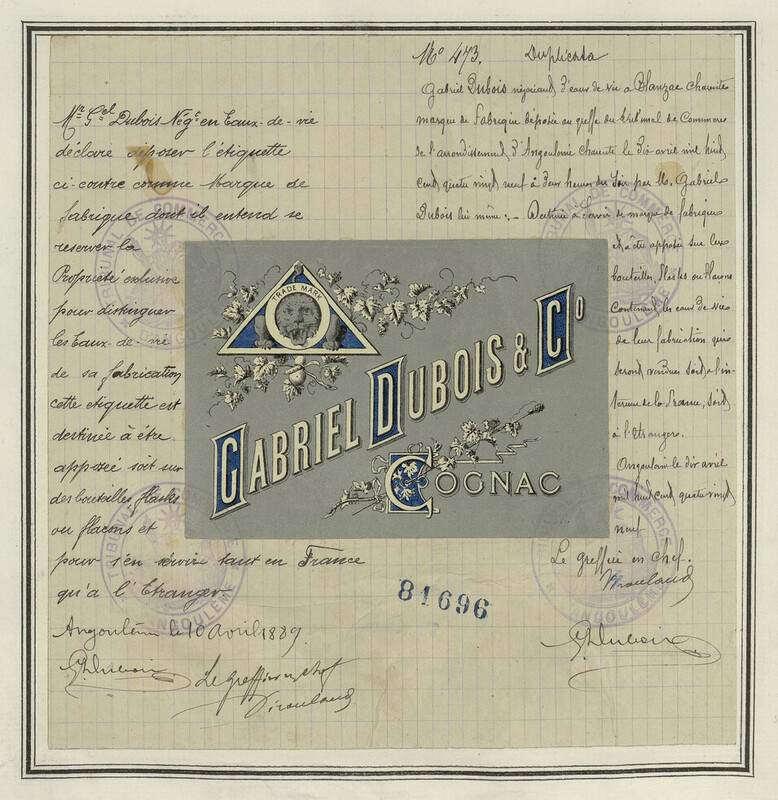 No 473. Duplicata
Mr Gel Dubois Négt en Eaux-de-vie
déclare déposer l'étiquette
ci-contre comme Marque de
fabrique dont il entend se
reserver la
Propriété exclusive
pour distinguer
les Eaux-de-vie
de sa fabrication
cette etiquette est
destinée à être
apposée soit sur
des bouteilles flasks
ou flacons et
pour s'en servir tant en France
qu'a l'Etranger
Angoulême le 10 Avril 1889
GDubois
Le Greffier en chef
Gabriel Dubois négociant d'eaux de vie a Blanzac Charente
marque de Fabrique déposée au greffe du tribunal de Commerce
de l'arrondissement d'Angoulême Charente le dix avril mil huit
cent quatre vingt neuf à deux heures du soir par M. Gabriel
Dubois lui même :- Destinée à servir de marque de fabrique
et à être apposée sur les
bouteilles, flasks ou flacons
contenant les eaux de vie
de leur fabrication qui
seront vendues soit à l'in-
terieur de la France, soit
à l'étranger.
Angoulême le dix avril
mil huit cent quatre vingt
neuf
Le greffier en chef.
GDubois
TRADE MARK
GABRIEL DUBOIS & Co
COGNAC
81696
TRIBUNAL DE COMMERCE
ANGOULÊME
TRIBUNAL DE COMMERCE
ANGOULÊME
TRIBUNAL DE COMMERCE
ANGOULÊME
TRIBUNAL DE COMMERCE
ANGOULÊME